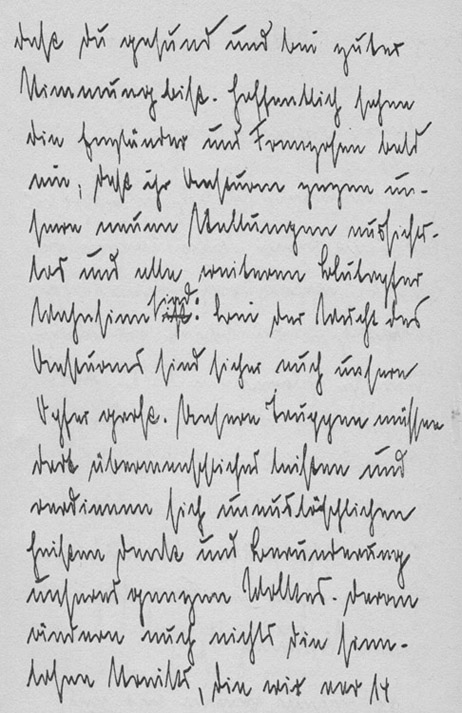 daß du gesund und bei guter
Stimmung bist. Hoffentlich sehen
die Engländer und Franzosen bald
ein, daß ihr Anstürmen gegen un-
sere neuen Stellungen aussichts-
los und alle weiteren Blutopfer
Wahnsinn sind: bei der Wucht des
Ansturms sind sicher auch unsere
Opfer groß. Unsere Truppen müssen
dort übermenschliches leisten und
verdienen sich unauslöschlichen
heißen Dank und Bewunderung
unseres ganzen Volkes. Daran
ändern auch nichts die sinn-
losen Streiks, die wir vor 14